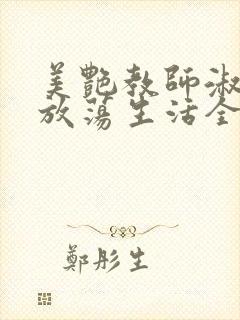 美艷教師淑
放蕩生活全
鄭彤生